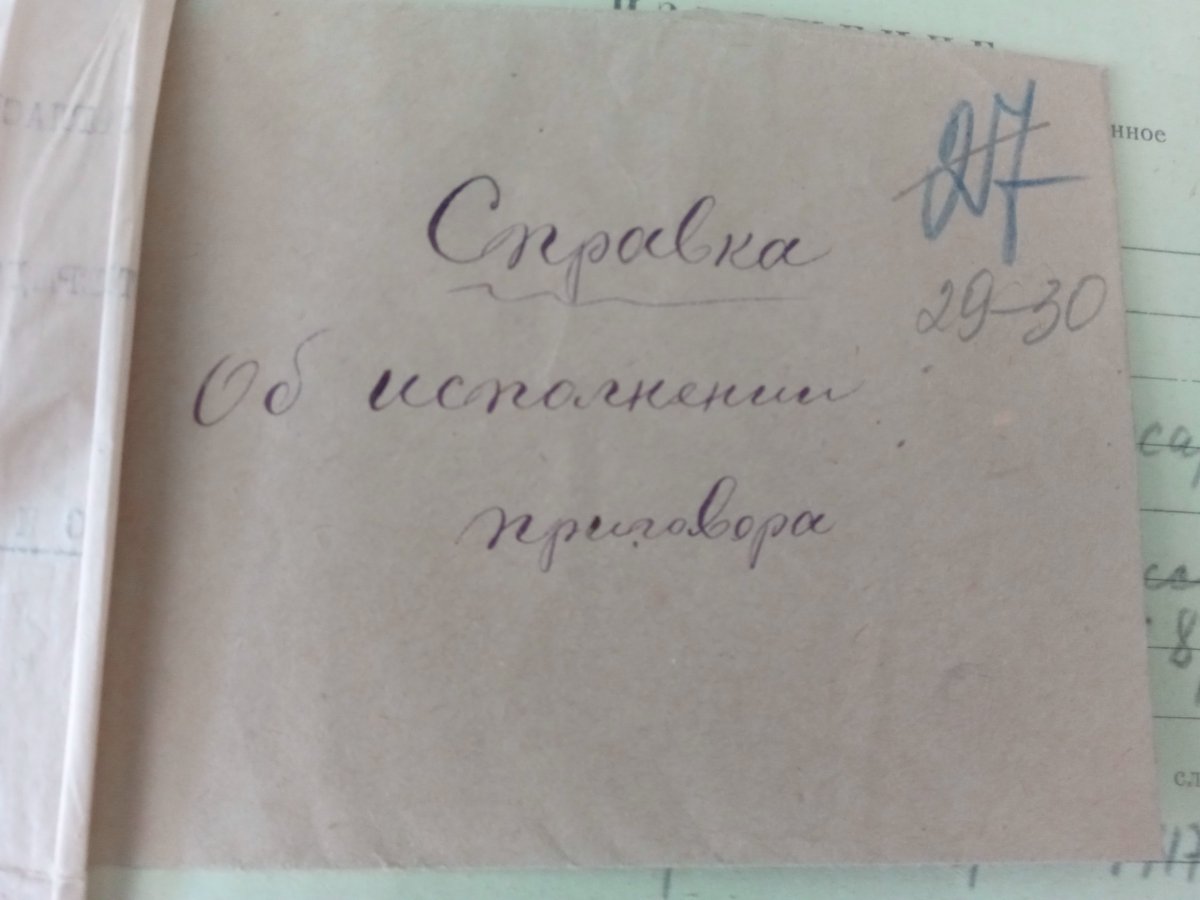 27
Справка
29-30
Об исполнении
приговора
нное